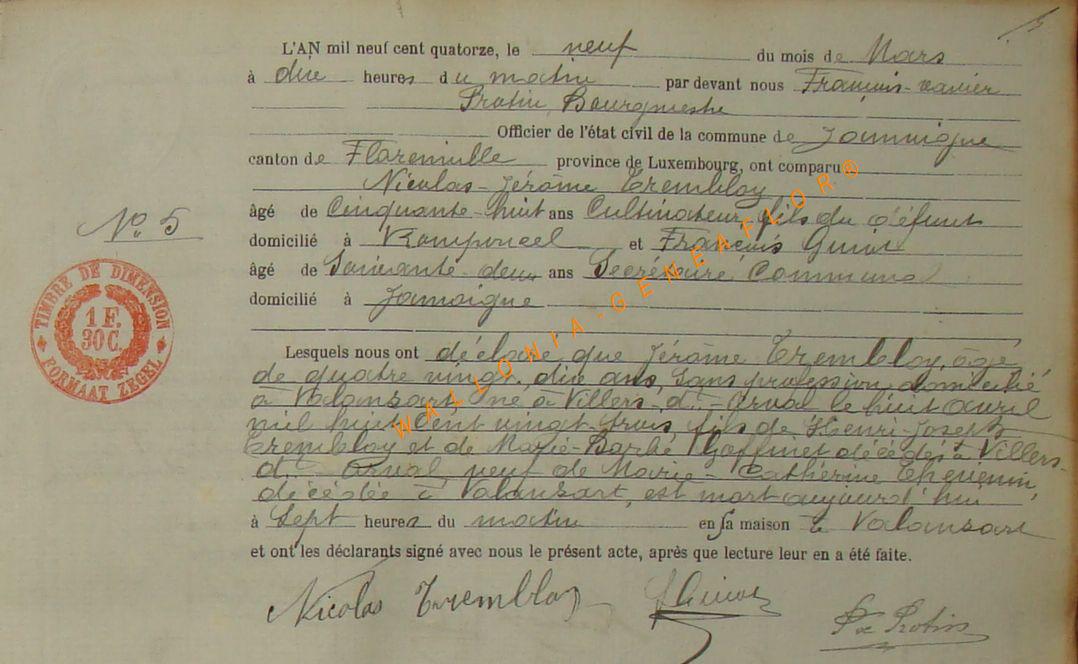 L'AN mil neuf cent quatorze, le neuf du mois de Mars
à dix heures du matin par devant nous François-Xavier
Protin, Bourgmestre
Officier de l'état civil de la commune de Jamoigne
canton de Florenville province de Luxembourg, ont comparu
Nicolas-Jérôme Trembloy
âgé de Cinquante-huit ans Cultivateur, fils du défunt
domicilié à Romponcel et François Guiot
âgé de Soixante-deux ans Secrétaire Communal
domicilié à Jamoigne
N° 5
TIMBRE DE DIMENSION
1 F.
30 C.
FORMAAT ZEGEL
Lesquels nous ont déclaré que Jérôme Trembloy, âgé
de quatre vingt-dix ans, sans profession, domicilié
à Valansart, né à Villers-d.-Orval le huit avril
mil huit cent vingt-trois, fils de Henri-Joseph
Trembloy et de Marie-Barbe Goffinet décédés à Villers-
d.-Orval, veuf de Marie-Catherine
décédée à Valansart, est mort aujourd'hui
à Sept heures du matin en sa maison à Valansart
et ont les déclarants signé avec nous le présent acte, après que lecture leur en a été faite.
Nicolas Trembloy F Guiot F x Protin
WALLONIA-GENEAFLOR®